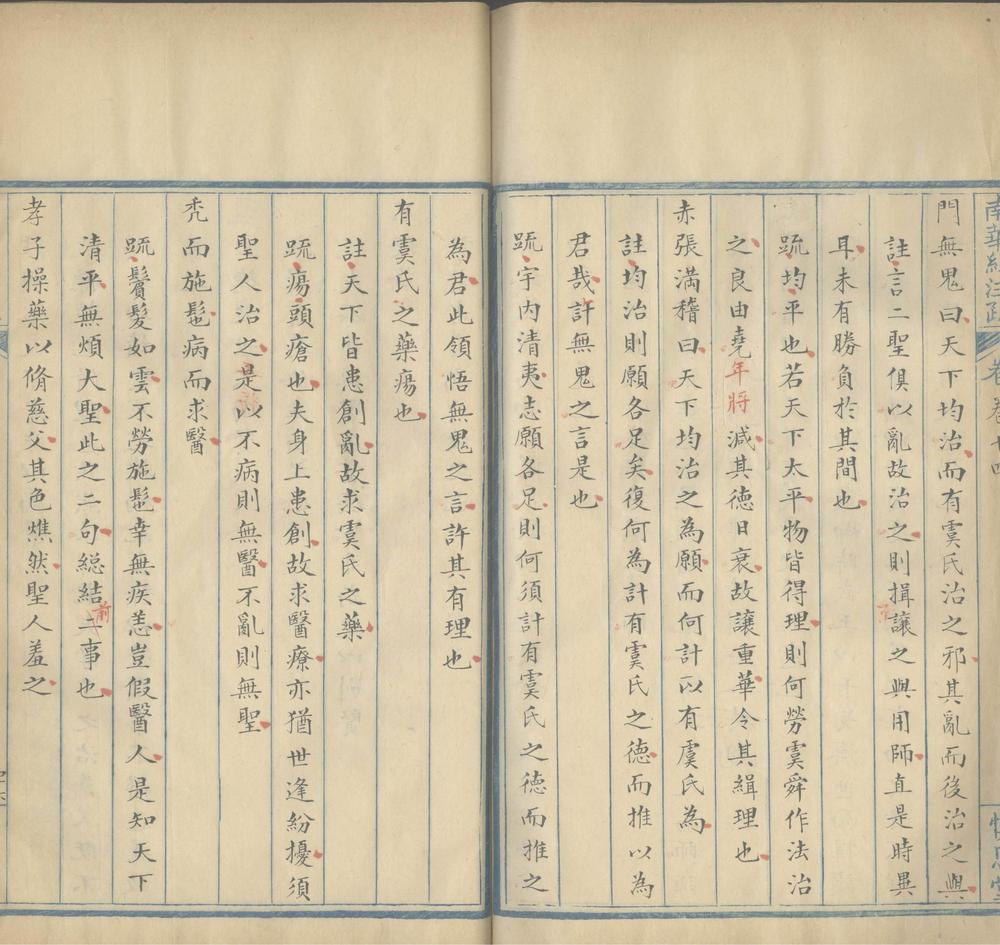 南華經注疏 卷十四
門無鬼曰天下均治而有虞氏治之邪其亂而後治之與
註言二聖俱以亂故治之則揖讓之與用師直是時異
耳未有勝負於其間也
疏均平也若天下太平物皆得理則何勞虞舜作法治
之良由堯年將減其德日衰故讓重華令其緝理也
赤張滿稽曰天下均治之為願而何計以有虞氏為
註均治則願各足矣復何為計有虞氏之德而推以為
君哉許無鬼之言是也
疏宇內清夷志願各足則何須計有虞氏之德而推之
為君此領悟無鬼之言許其有理也
有虞氏之藥瘍也
註天下皆患創亂故求虞氏之藥
疏瘍頭瘡也夫身上患創故求醫療亦猶世逢紛擾須
聖人治之是以不病則無醫不亂則無聖
禿而施髢病而求醫
疏鬢髮如雲不勞施髢幸無疾恙豈假醫人是知天下
清平無煩大聖此之二句總結前事也
孝子操藥以脩慈父其色燋然聖人羞之